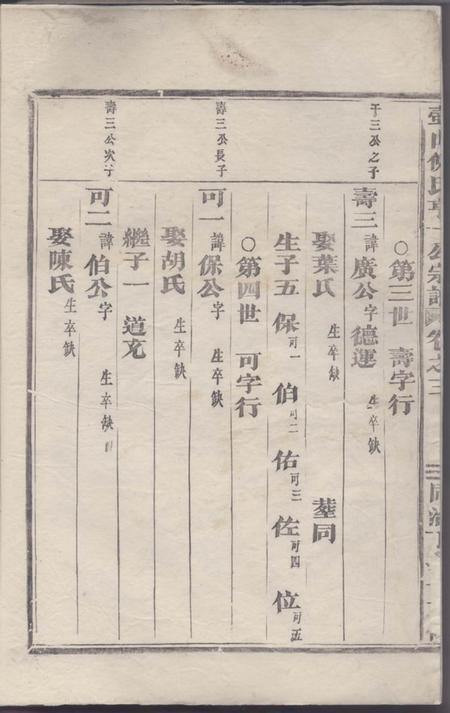 公宗譜卷之三
○第三世　壽字行
于三公之子
壽三　諱廣公字德運　生卒缺
娶葉氏　生卒缺　塟同
生子五　保可一　伯可二　佑可三　佐可四　位可五
○第四世　可字行
壽三公長子
可一　諱保公字　生卒缺
娶胡氏　生卒缺
繼子一　道充
壽三公次子
可二　諱伯公字　生卒缺
娶陳氏　生卒缺